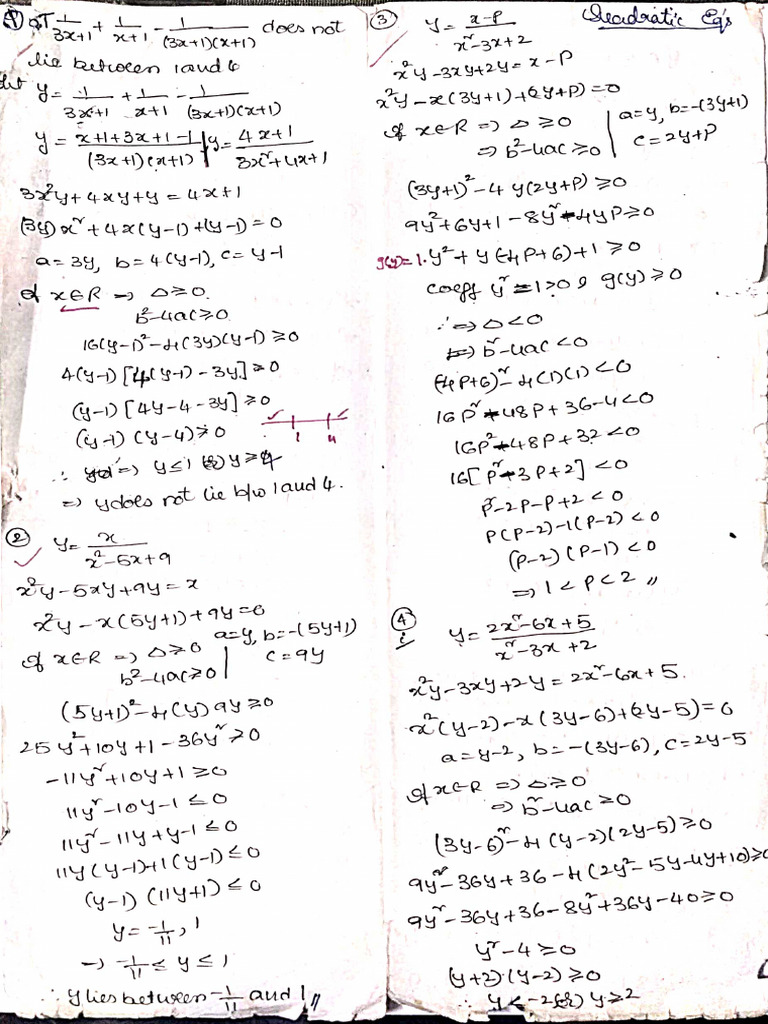 Quadratic Eq's
① ST 1/(3x+1) + 1/(x+1) - 1/((3x+1)(x+1)) does not
lie between 1 and 4
let y = 1/(3x+1) + 1/(x+1) - 1/((3x+1)(x+1))
y = (x+1+3x+1-1)/((3x+1)(x+1)) | y = (4x+1)/(3x²+4x+1)
3x²y+4xy+y = 4x+1
(3y)x²+4x(y-1)+(y-1)=0
a=3y, b=4(y-1), c=y-1
If x∈R ⇒ Δ≥0
b²-4ac≥0
16(y-1)²-4(3y)(y-1)≥0
4(y-1)[4(y-1)-3y]≥0
(y-1)[4y-4-3y]≥0
(y-1)(y-4)≥0
1 4
∴ ⇒ y≤1 (or) y≥4
⇒ y does not lie b/w 1 and 4.
② y = x/(x²-5x+9)
x²y-5xy+9y=x
x²y-x(5y+1)+9y=0
If x∈R ⇒ Δ≥0 | a=y, b=-(5y+1)
b²-4ac≥0 | c=9y
(5y+1)²-4(y)9y≥0
25y²+10y+1-36y²≥0
-11y²+10y+1≥0
11y²-10y-1≤0
11y²-11y+y-1≤0
11y(y-1)+1(y-1)≤0
(y-1)(11y+1)≤0
y=-1/11, 1
→ -1/11 ≤ y ≤ 1
∴ y lies between -1/11 and 1 //
③ y = (x-p)/(x²-3x+2)
x²y-3xy+2y=x-p
x²y-x(3y+1)+(2y+p)=0
If x∈R ⇒ Δ≥0 | a=y, b=-(3y+1)
⇒ b²-4ac≥0 | c=2y+p
(3y+1)²-4y(2y+p)≥0
9y²+6y+1-8y²-4yp≥0
g(y)=1.y²+y(-4p+6)+1≥0
coeff y²=1>0 & g(y)≥0
∴ ⇒ Δ<0
⇒ b²-4ac<0
(-4p+6)²-4(1)(1)<0
16p²-48p+36-4<0
16p²-48p+32<0
16[p²-3p+2]<0
p²-2p-p+2<0
p(p-2)-1(p-2)<0
(p-2)(p-1)<0
⇒ 1<p<2 //
④
i y = (2x²-6x+5)/(x²-3x+2)
x²y-3xy+2y=2x²-6x+5.
x²(y-2)-x(3y-6)+(2y-5)=0
a=y-2, b=-(3y-6), c=2y-5
If x∈R ⇒ Δ≥0
⇒ b²-4ac≥0
(3y-6)²-4(y-2)(2y-5)≥0
9y²-36y+36-4(2y²-5y-4y+10)≥0
9y²-36y+36-8y²+36y-40≥0
y²-4≥0
(y+2)(y-2)≥0
∴ y<-2 (or) y≥2